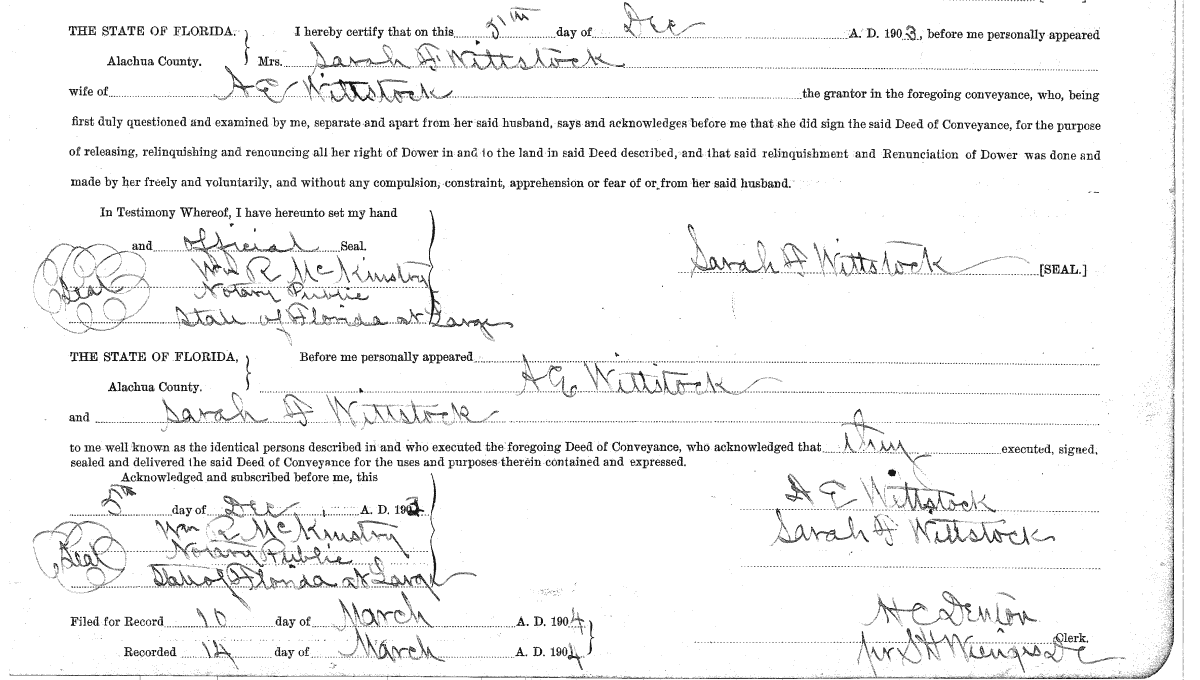 THE STATE OF FLORIDA, I hereby certify that on this 5th day of Dec A. D. 1903, before me personally appeared
Alachua County. Mrs. Sarah F Wittstock
wife of A E Wittstock the grantor in the foregoing conveyance, who, being
first duly questioned and examined by me, separate and apart from her said husband, says and acknowledges before me that she did sign the said Deed of Conveyance, for the purpose
of releasing, relinquishing and renouncing all her right of Dower in and to the land in said Deed described, and that said relinquishment and Renunciation of Dower was done and
made by her freely and voluntarily, and without any compulsion, constraint, apprehension or fear of or from her said husband.
In Testimony Whereof, I have hereunto set my hand
and official Seal.
Sarah F Wittstock [SEAL.]
Wm R McKinstry
Seal Notary Public
State of Florida at Large
THE STATE OF FLORIDA, Before me personally appeared
Alachua County. A E Wittstock
and Sarah F Wittstock
to me well known as the identical persons described in and who executed the foregoing Deed of Conveyance, who acknowledged that they executed, signed,
sealed and delivered the said Deed of Conveyance for the uses and purposes therein contained and expressed.
Acknowledged and subscribed before me, this
5th day of Dec, A. D. 1903
A E Wittstock
Wm R McKinstry
Sarah F Wittstock
Seal Notary Public
State of Florida at Large
Filed for Record 10 day of March A. D. 1904
H C Denton
Clerk.
Recorded 14 day of March A. D. 1904
per S H Wienges DC